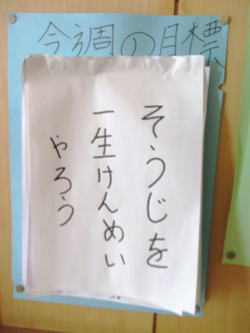 今週の目標
そうじを
一生けんめい
やろう